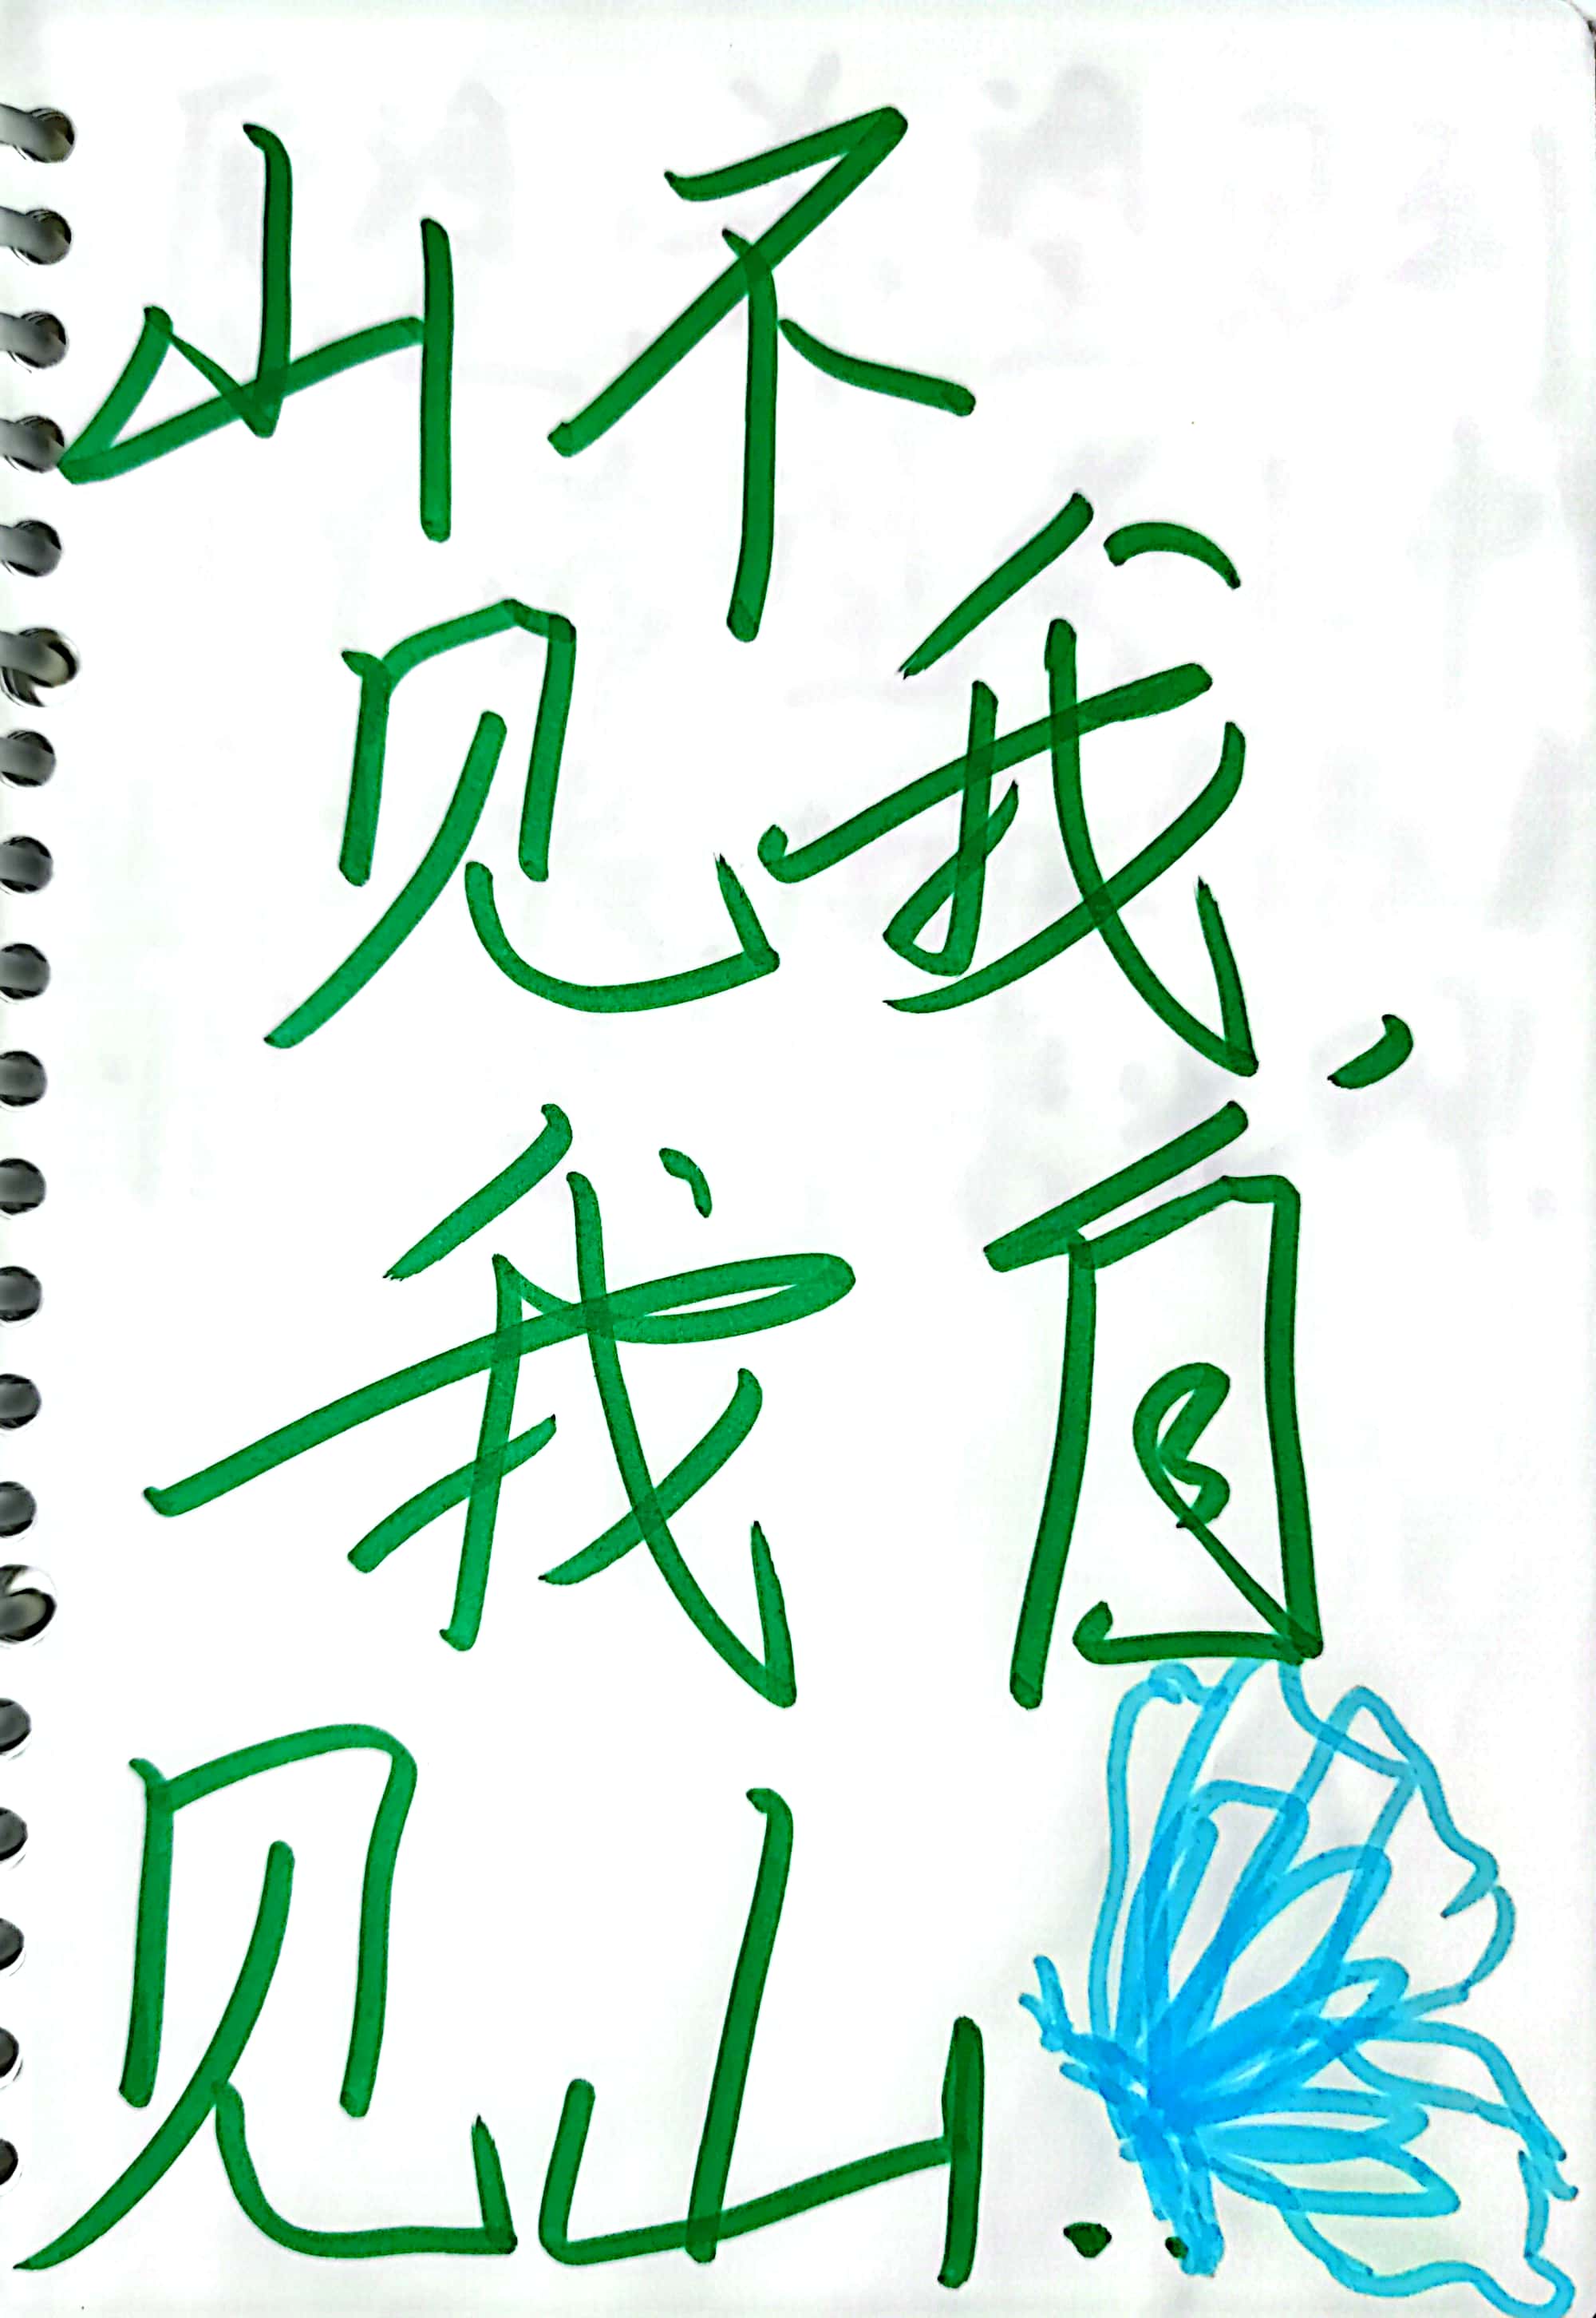 山不
见我，
我自
见山..